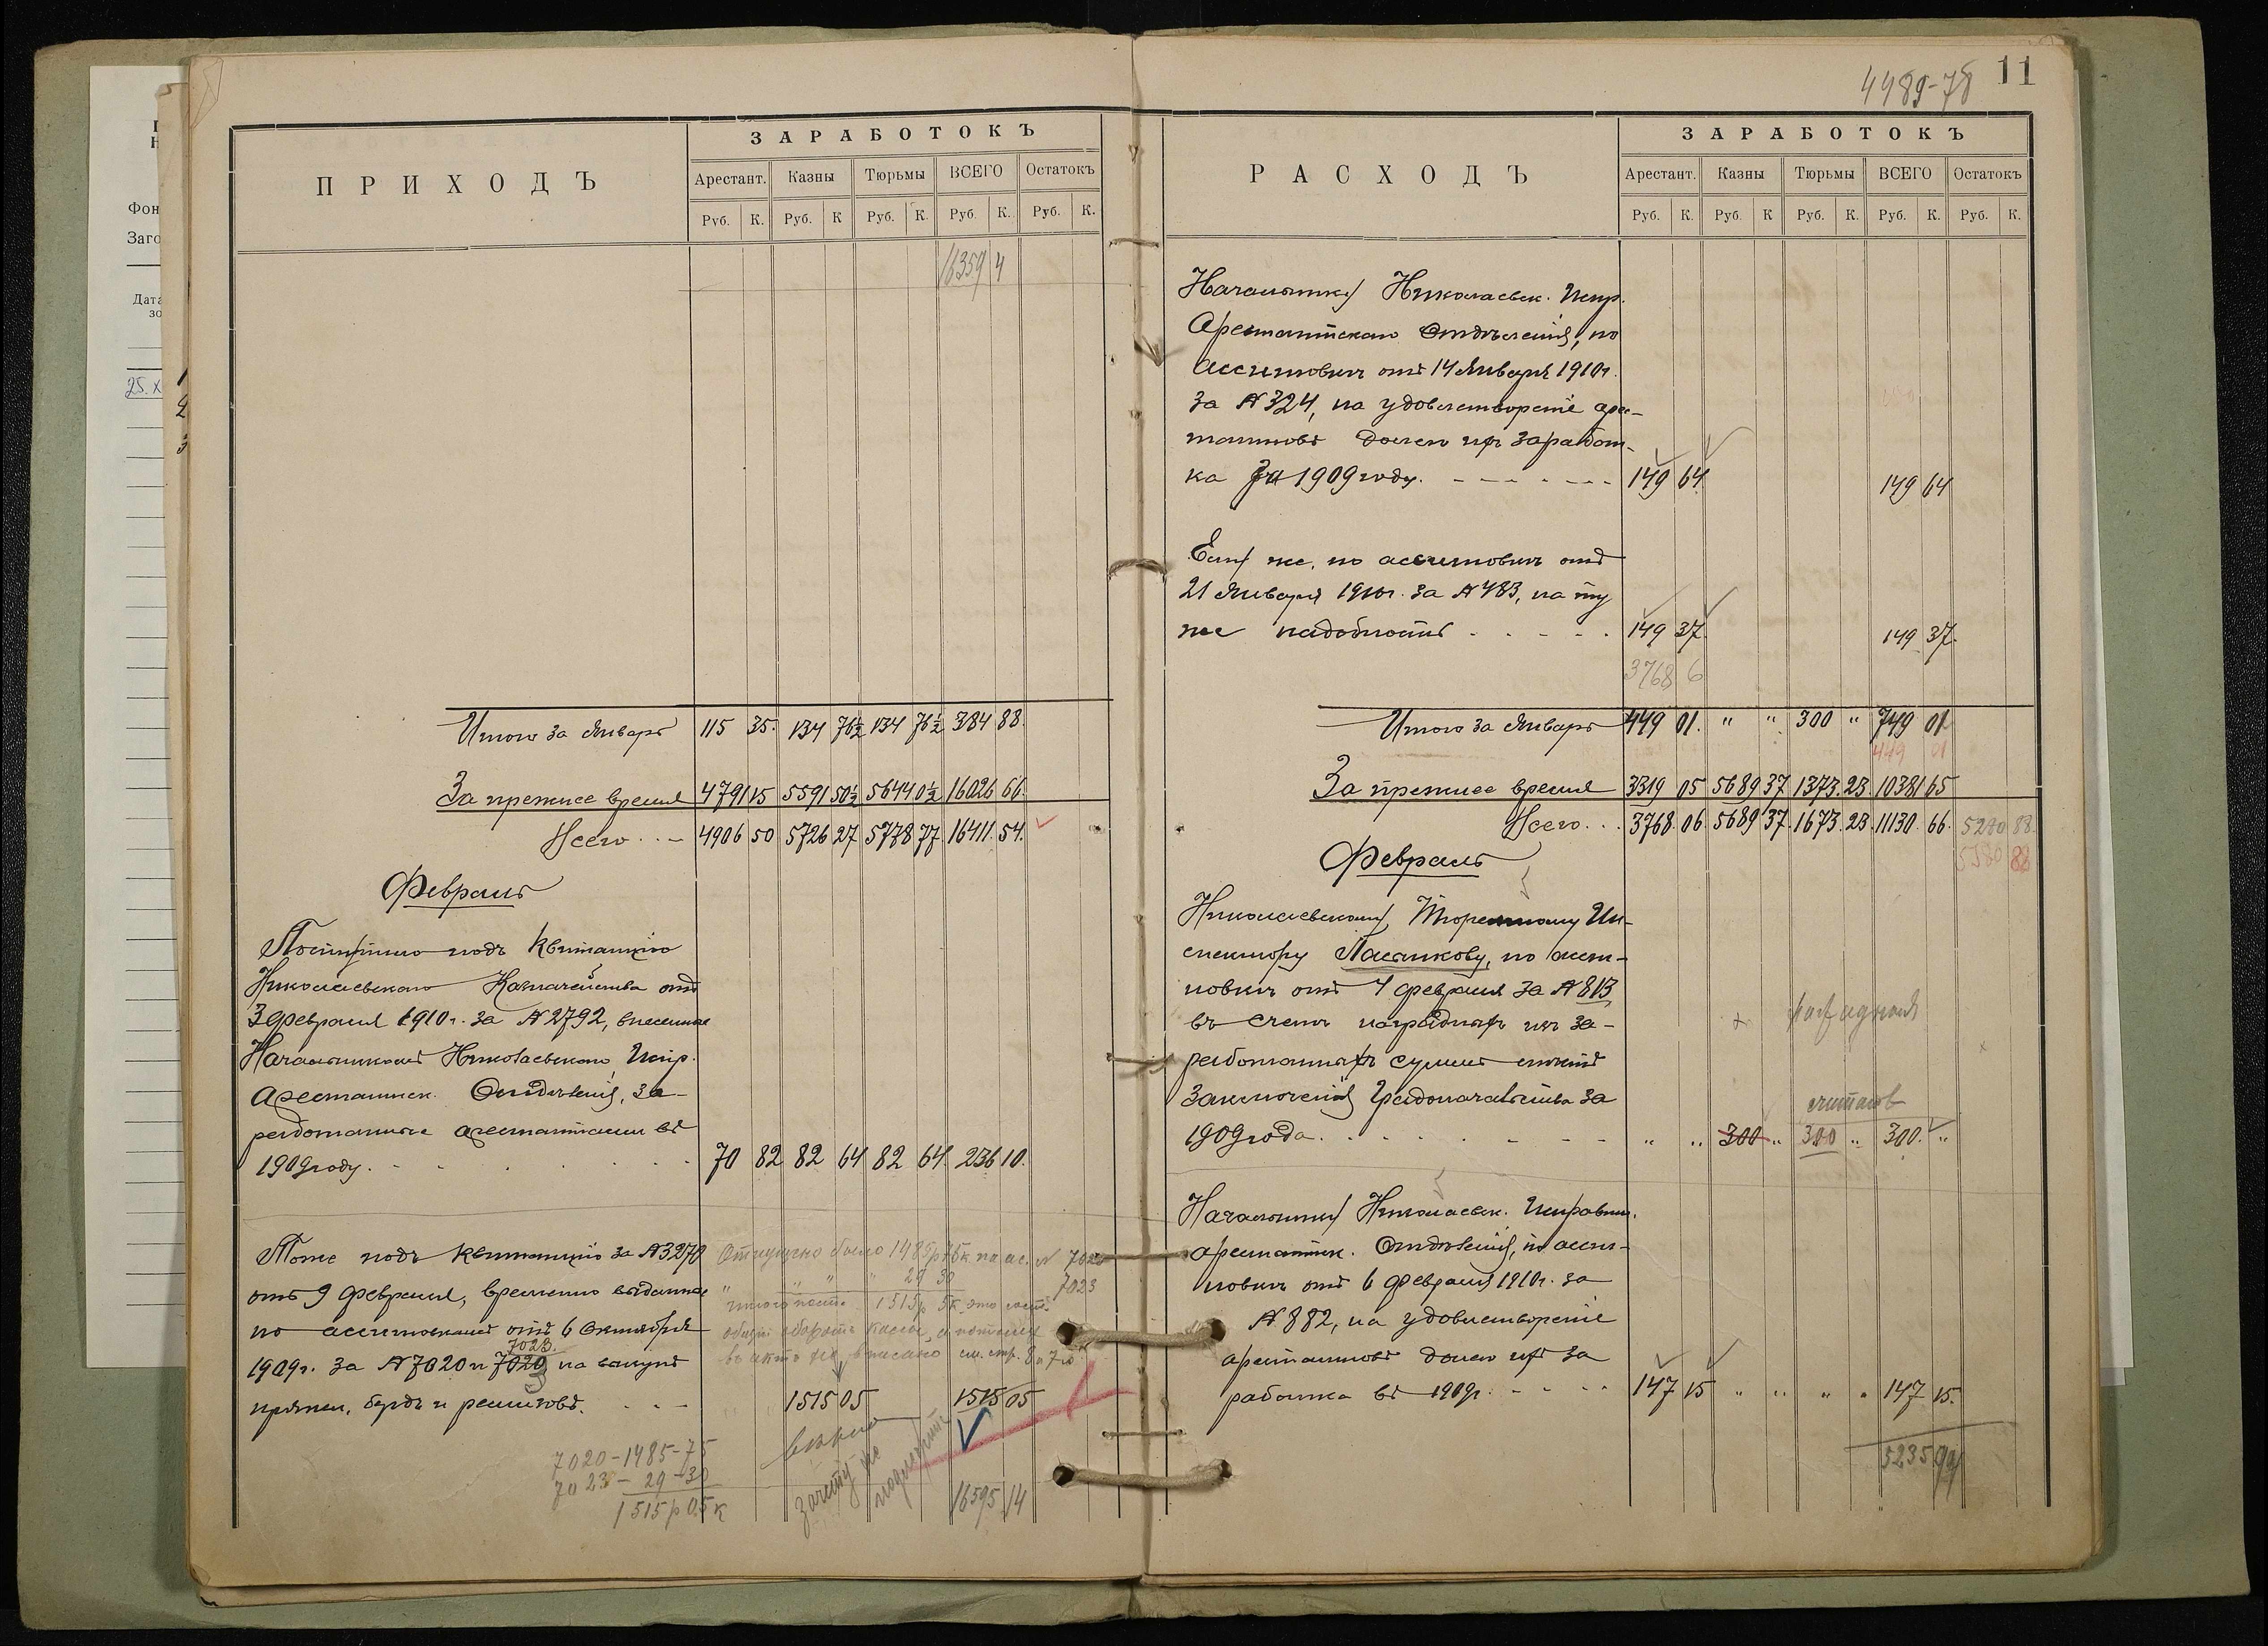 4489-78 11
ПРИХОДЪ
ЗАРАБОТОКЪ
Арестант. Казны Тюрьмы ВСЕГО Остатокъ
Руб. К. Руб. К Руб. К. Руб. К. Руб. К.
16359 4
Итого за Январь 115 35. 134 76½ 134 76½ 384 88.
За прежнее время 4791 15 5591 50½ 5644 0½ 16026 66.
Всего 4906 50 5726 27 5778 77 16411. 54.
Февраль
Поступило подъ квитанцію
Николаевскаго Казначейства отъ
3 февраля 1910 г. за № 2792, внесенные
Начальникомъ Николаевскаго Испр.
Арестантск. Отдѣленія, за-
работанные арестантами въ
1909 году. 70 82 82 64 82 64 236 10.
Тоже подъ квитанцію за № 3270
отъ 9 февраля, временно выданные
по ассигновкамъ отъ 6 Октября
7023.
1909 г. за № 7020 и 7020 на закупку
пряжи, бердъ и ремизовъ. 1515 05 1515 05
Отпущено было 1485 р 75 к по ас. № 7020
" " " " 29 30 7023
1515 р 5 к
см. стр. 8 и 7
вѣрно
зачету не
подлежитъ
7020-1485-75
7023- 29-30
1515 р 05 к
16595 14
РАСХОДЪ
ЗАРАБОТОКЪ
Арестант. Казны Тюрьмы ВСЕГО Остатокъ
Руб. К. Руб. К Руб. К. Руб. К. Руб. К.
Начальнику Николаевск. Испр.
Арестантскаго Отдѣленія, по
ассигновкѣ отъ 14 Января 1910 г.
за № 324, на удовлетвореніе арес-
тантовъ долею ихъ заработ-
ка за 1909 году. 149 64. 149 64
Ему же, по ассигновкѣ отъ
21 Января 1910 г. за № 483, на ту
же надобность 149 37. 149 37.
3768 6
Итого за Январь 449 01. " " 300 " 749 01
449 01
За прежнее время 3319 05 5689 37. 1373. 23. 10381 65
Всего... 3768. 06. 5689 37. 1673. 23. 11130. 66. 5280 88.
5280 88
Февраль
Николаевскому Тюремному Ин-
спектору Пасынкову, по ассиг-
новкѣ отъ 4 февраля за № 813
въ счетъ наградныхъ изъ за-
работанныхъ суммъ
Градоначальства за
1909 года. " " 300 " 300 " 300. "
Начальнику Николаевск. Исправит.
арестантск. Отдѣленія, по ассиг-
новкѣ отъ 6 февраля 1910 г. за
№ 882, на удовлетвореніе
арестантовъ долею ихъ за
работка въ 1909 г. 147 15 " " " " 147 15.
5235 99